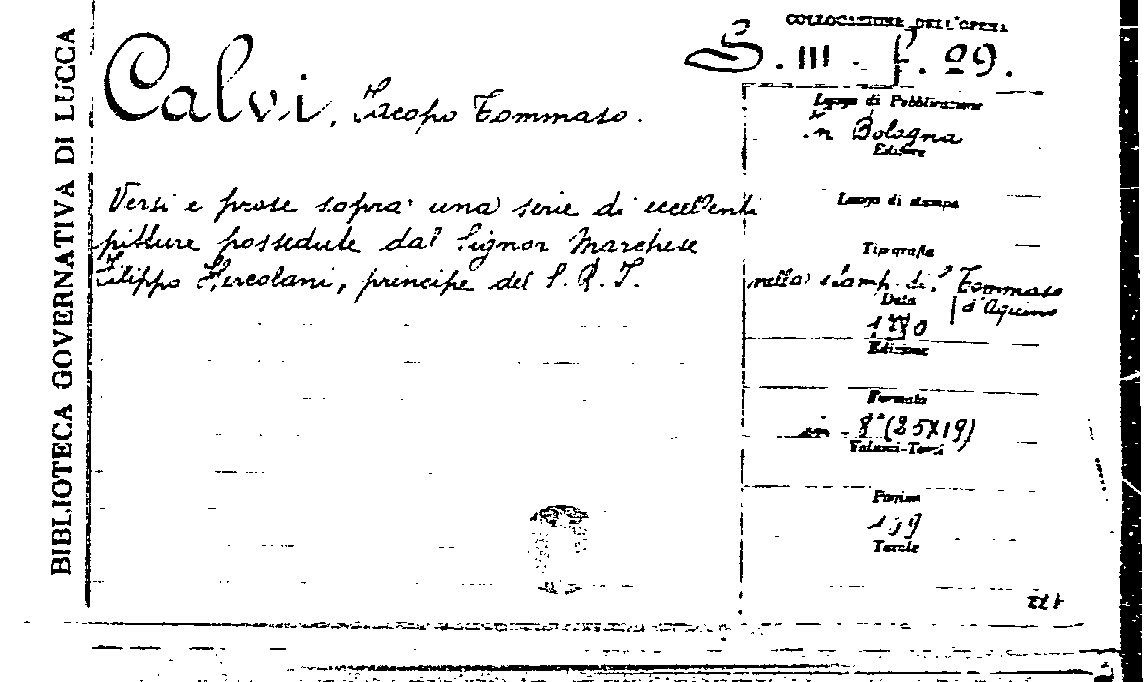 BIBLIOTECA GOVERNATIVA DI LUCCA
COLLOCAZIONE DELL'OPERA
S. III. f. 29.
Calvi, Jacopo Tommaso.
Versi e prose sopra una serie di eccellenti
pitture possedute dal Signor Marchese
Filippo Hercolani, principe del S. R. I.
Luogo di Pubblicazione
in Bologna
Editore
Luogo di stampa
Tipografia
nella stamp. di S. Tommaso
d'Aquino
Data
Edizione
Formato
in - 8° (25X19)
Volumi-Tomi
Pagine
Tavole